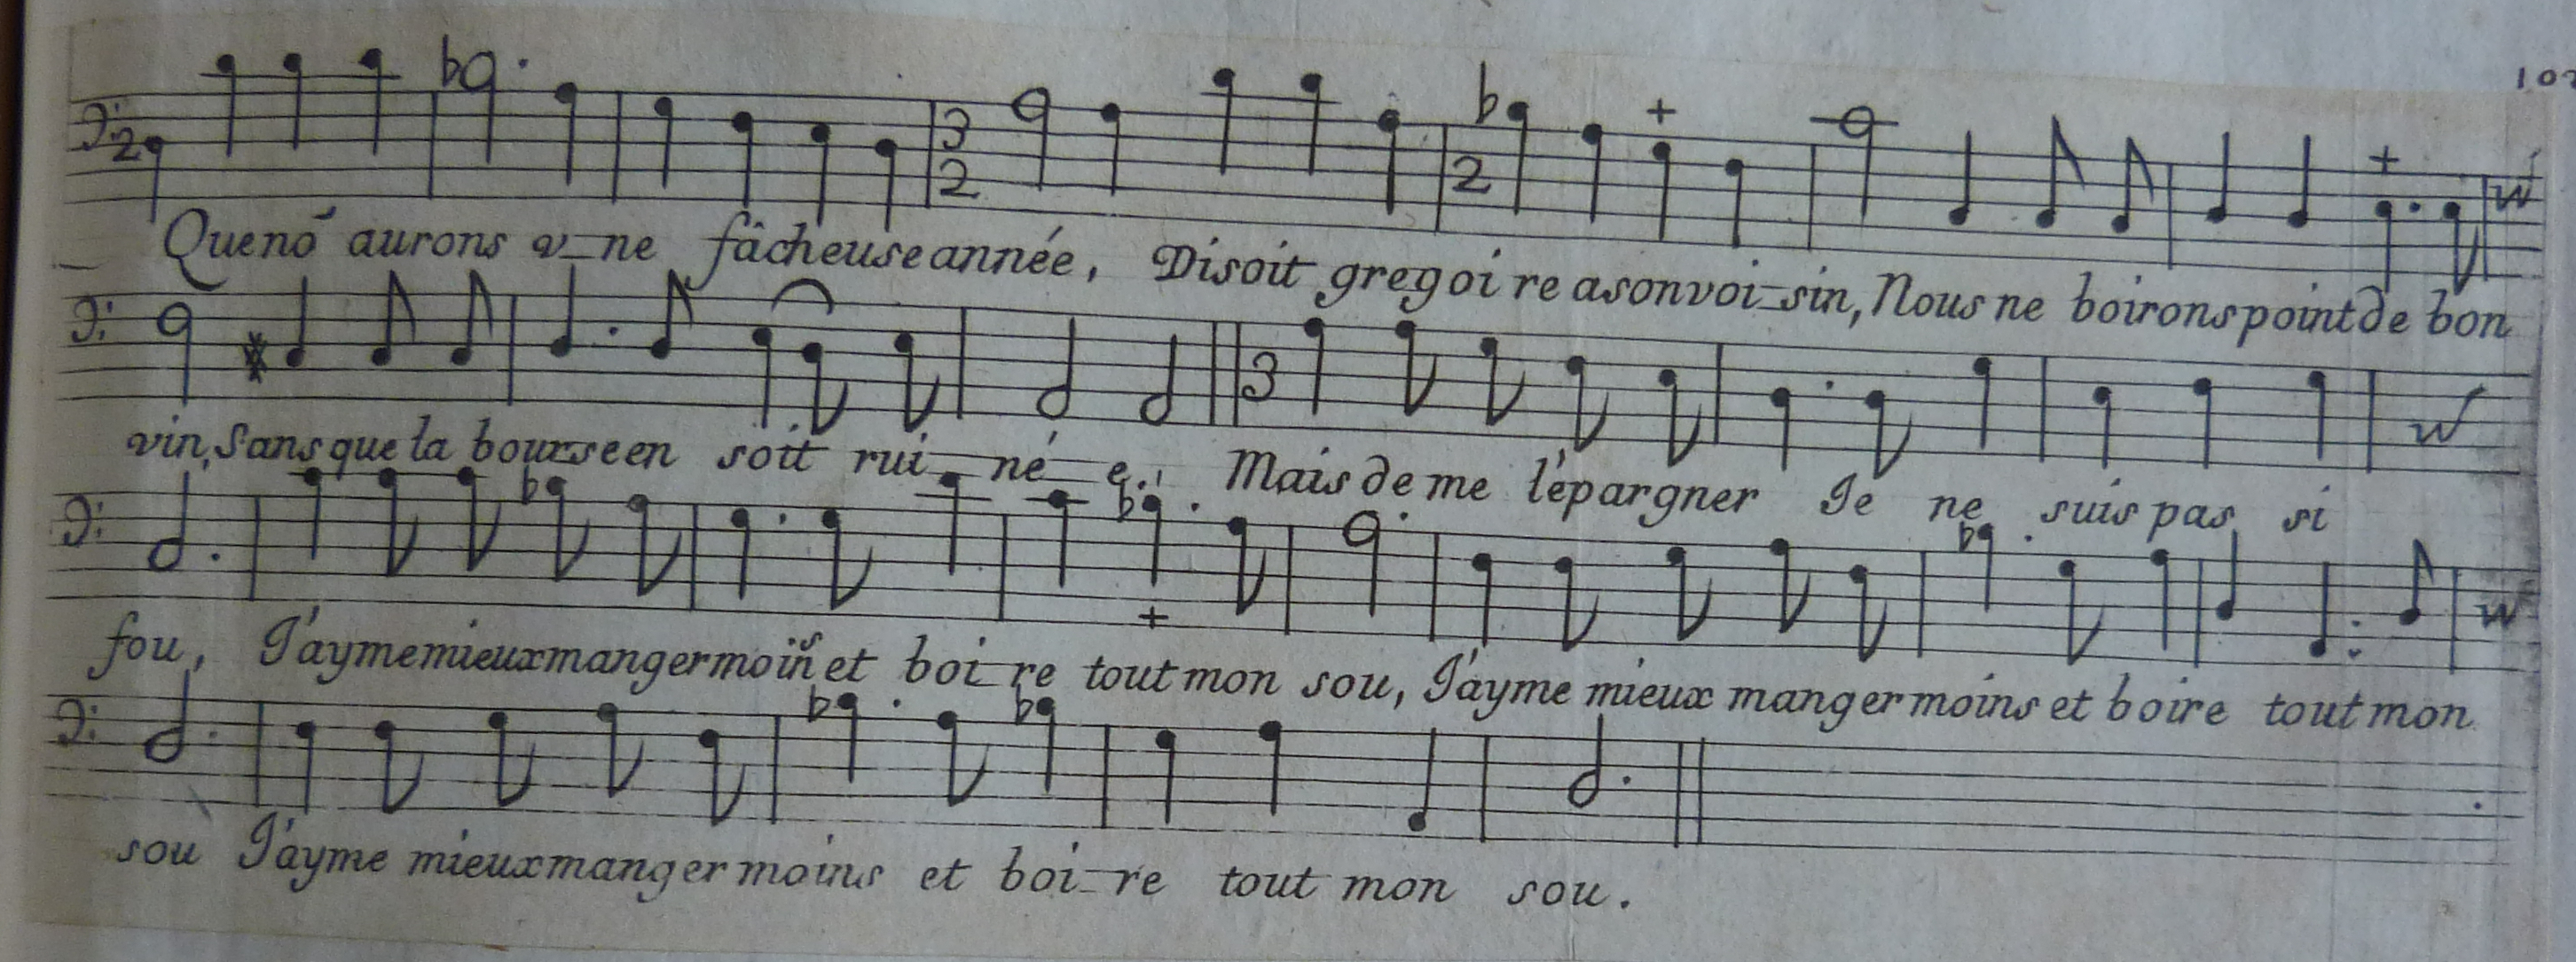 102
Que nõ aurons v_ne fâcheuse année, Disoit gregoire a son voi_sin, Nous ne boirons point de bon
vin, Sans que la bourse en soit rui_né_e. Mais de me l'épargner Je ne suis pas si
fou, J'ayme mieux manger moins et boi_re tout mon sou, J'ayme mieux manger moins et boire tout mon
sou J'ayme mieux manger moins et boi_re tout mon sou.